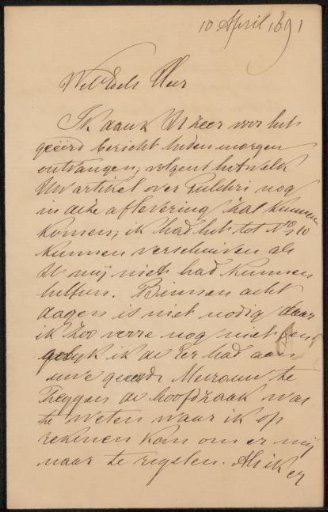 10 April 1891
WelEdele Heer
Ik dank U zeer voor het
geëerd bericht heden morgen
ontvangen, volgens hetwelk
Uw artikel over nog
in deze aflevering zal kunnen
komen; ik had het tot No 10
kunnen verschuiven als
U mij niet had kunnen
helpen. Binnen acht
dagen is niet nodig daar
ik zoo verre nog niet ben
gelijk ik de eer had aan
uwe geeerde Mevrouw te
zeggen de hoofdzaak was
te weten waar ik op
rekenen kan om er mij
naar te regelen. Als ik er